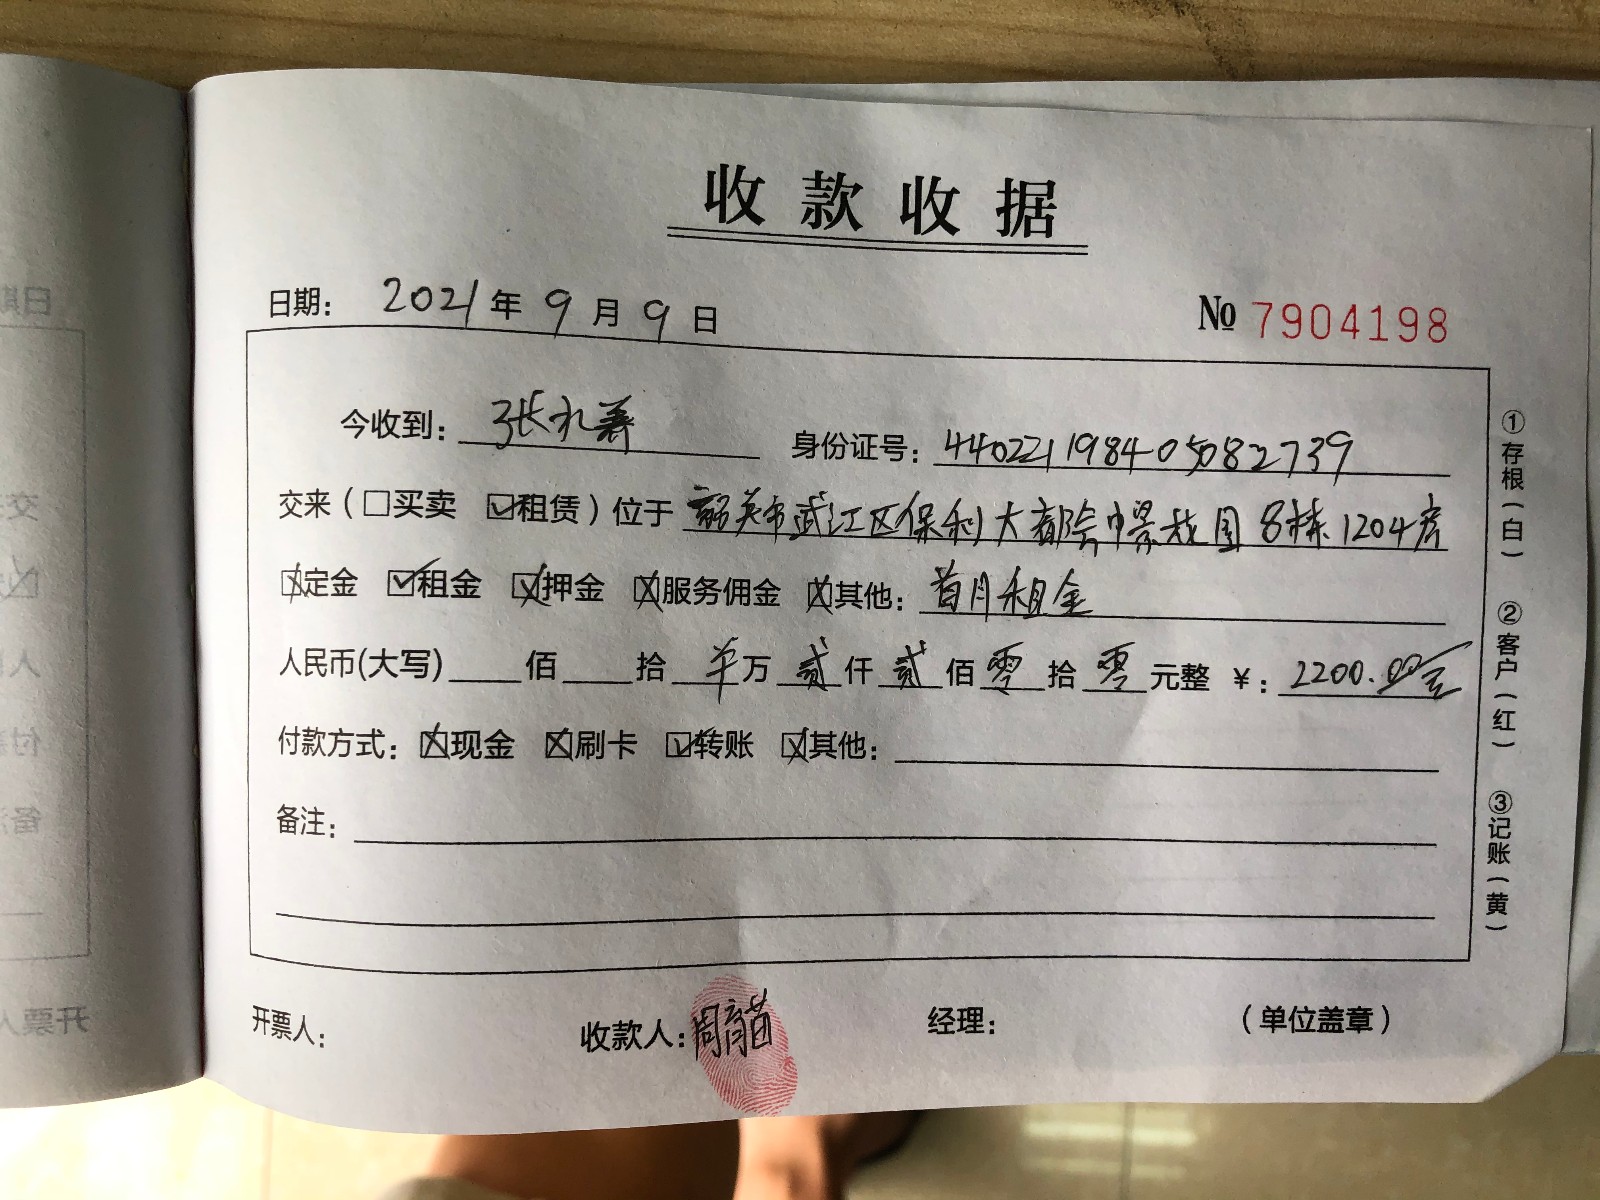 收款收据
日期: 2021年9月9日 № 7904198
今收到: 张礼 身份证号: 440221198405082739
交来(□买卖 ☑租赁)位于 韶关市武江区保利大都会 8栋1204房
☒定金 ☑租金 ☒押金 ☒服务佣金 ☒其他: 首月租金
人民币(大写) 佰 拾 万 贰仟 贰佰 零拾 零元整 ¥: 2200.00元
付款方式: ☒现金 ☒刷卡 ☑转账 ☒其他:
备注:
开票人: 收款人: 周育苗 经理: (单位盖章)
①存根(白) ②客户(红) ③记账(黄)
日期
交
人
付
备注
开票人